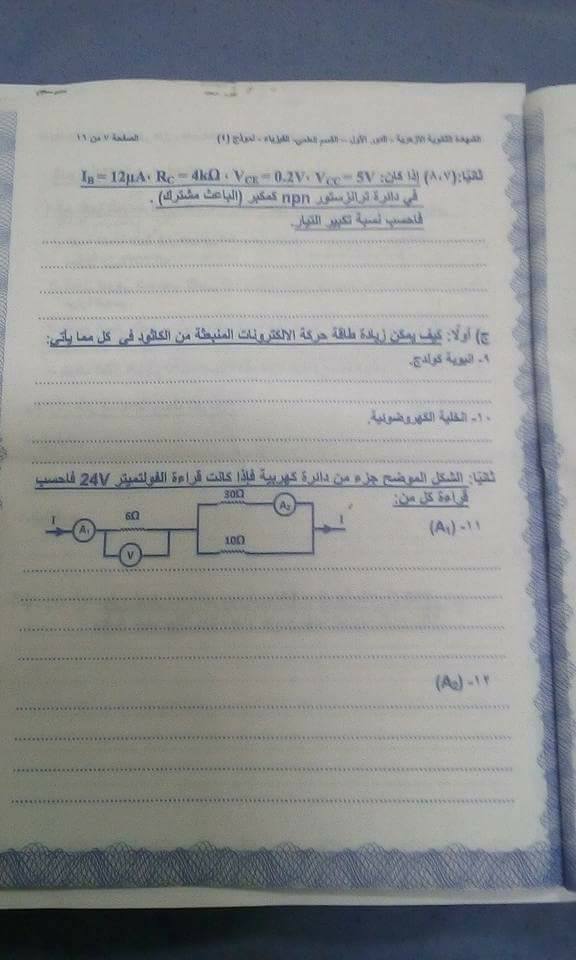 الشهادة الثانوية الأزهرية - الدور الأول - القسم العلمي- الفيزياء - نموذج (١)
الصفحة ٧ من ١٦
ثانيًا: (٨،٧) إذا كان: I_B = 12µA، R_C = 4kΩ، V_CE = 0.2V، V_CC = 5V
في دائرة ترانزستور npn كمكبر (الباعث مشترك).
فاحسب نسبة تكبير التيار.
ج) أولًا: كيف يمكن زيادة طاقة حركة الالكترونات المنبعثة من الكاثود في كل مما يأتي:
٩- انبوبة كولدج.
١٠- الخلية الكهروضوئية.
ثانيًا: الشكل الموضح جزء من دائرة كهربية فإذا كانت قراءة الفولتميتر 24V فاحسب
قراءة كل من:
١١- (A₁)
I A₁ 6Ω V 30Ω A₂ 10Ω I
١٢- (A₂)